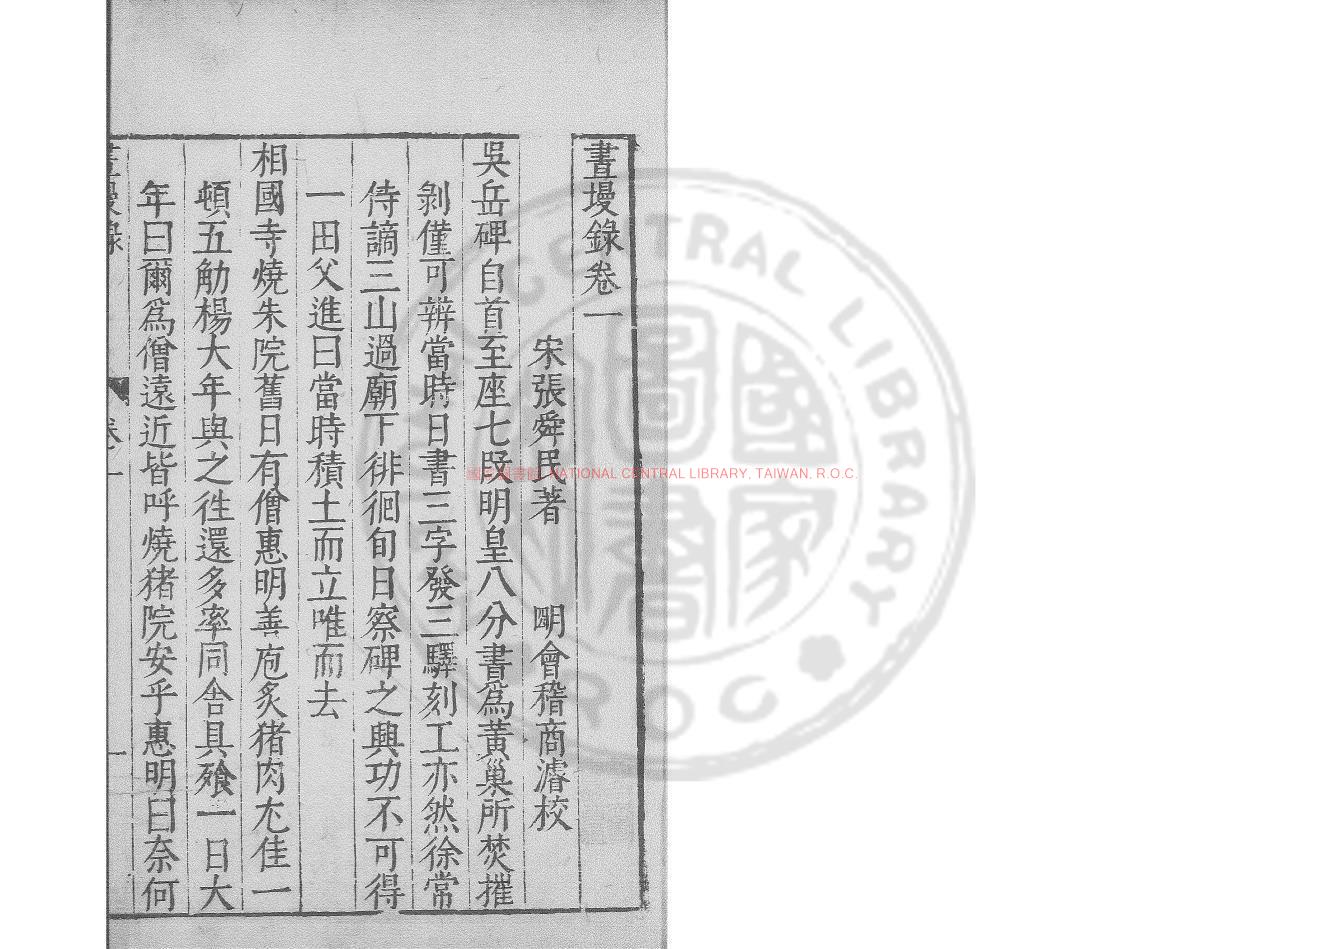 畫墁錄卷一
宋張舜民著　明會稽商濬校
吳岳碑自首至座七叚明皇八分書爲黃巢所焚摧
剝僅可辨當時日書三字發三驛刻工亦然徐常
侍謫三山過廟下徘徊旬日察碑之興功不可得
一田父進曰當時積土而立唯而去
相國寺燒朱院舊日有僧惠明善庖炙猪肉尢佳一
頓五觔楊大年與之徃還多率同舍具飱一日大
年曰爾爲僧遠近皆呼燒猪院安乎惠明曰奈何
畫墁錄　卷一　一
國家圖書館 NATIONAL CENTRAL LIBRARY, TAIWAN, R.O.C.
CENTRAL LIBRARY
R O C
國家圖書